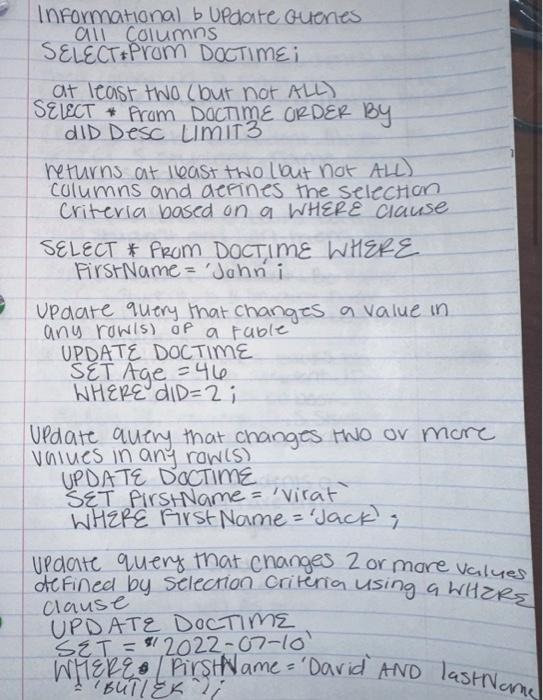 Informational & Update Queries
all columns
SELECT * From DOCTIME;
at least two (but not ALL)
SELECT * From DOCTIME ORDER By
dID Desc LIMIT 3
returns at least two (but not ALL)
columns and defines the selection
Criteria based on a WHERE clause
SELECT * From DOCTIME WHERE
FirstName = 'John';
Update query that changes a value in
any row(s) of a table
UPDATE DOCTIME
SET Age = 46
WHERE dID=2;
Update query that changes two or more
values in any row(s)
UPDATE DOCTIME
SET FirstName = 'Virat'
WHERE FirstName = 'Jack';
Update query that changes 2 or more values
defined by selection criteria using a WHERE
clause
UPDATE DOCTIME
SET = '2022-07-10'
WHERE FirstName = 'David' AND lastName
= 'BUTLER');